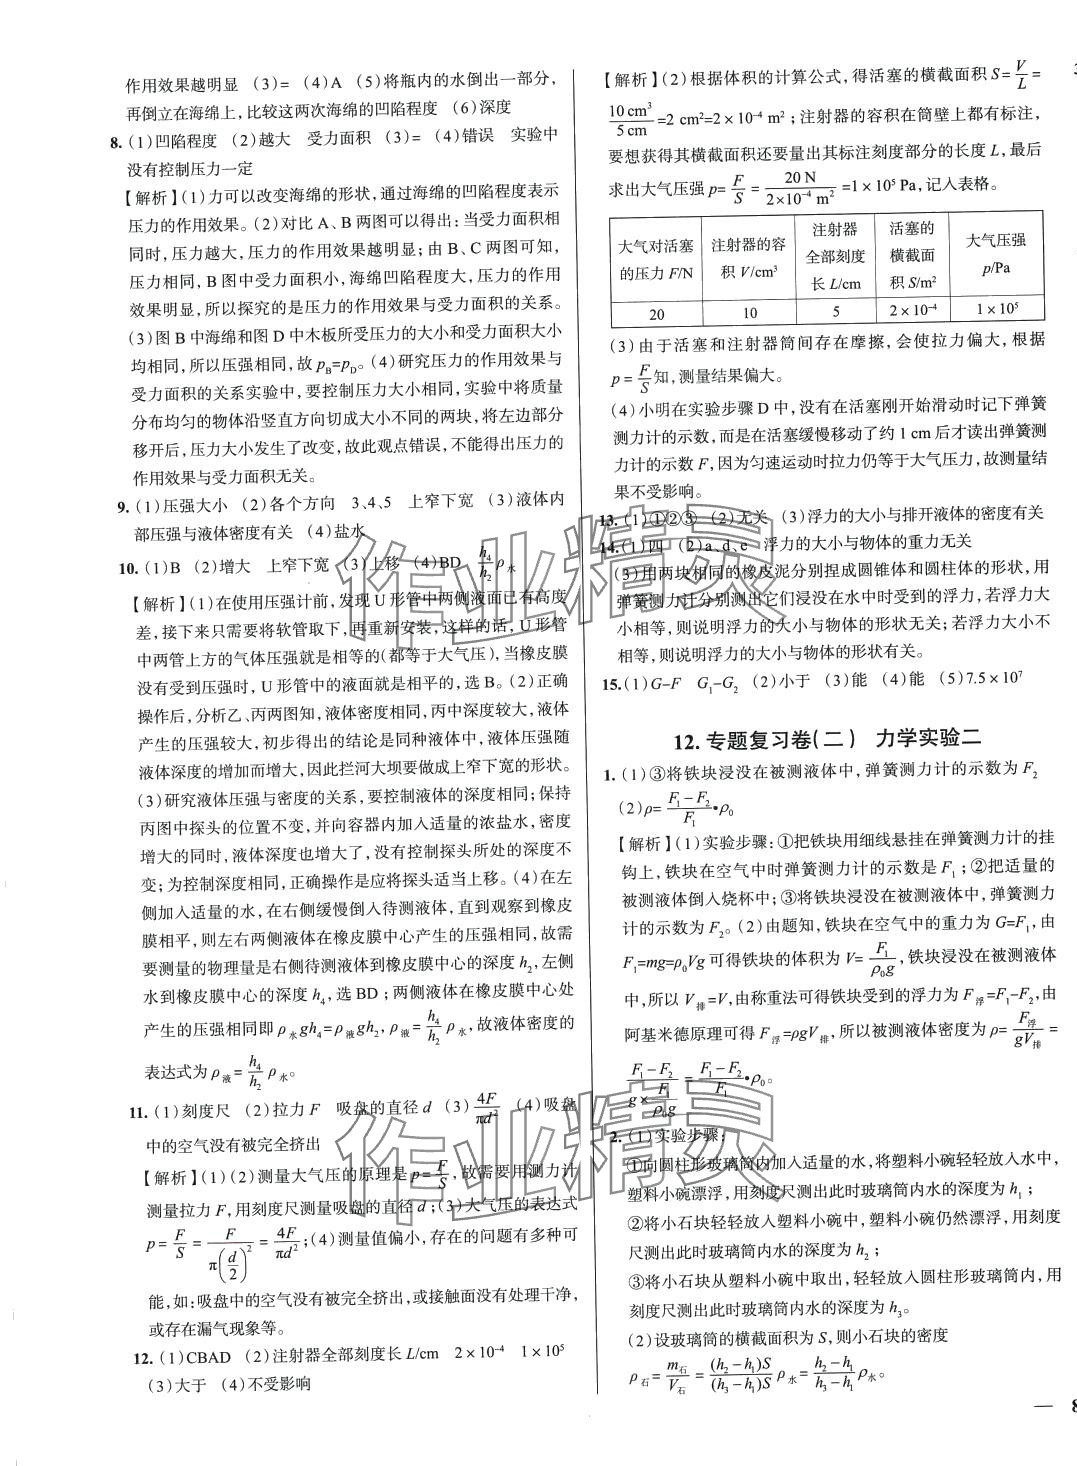 作用效果越明显 (3)= (4)A (5)将瓶内的水倒出一部分,
再倒立在海绵上,比较这两次海绵的凹陷程度 (6)深度
8.(1)凹陷程度 (2)越大 受力面积 (3)= (4)错误 实验中
没有控制压力一定
【解析】(1)力可以改变海绵的形状,通过海绵的凹陷程度表示
压力的作用效果。(2)对比 A、B 两图可以得出:当受力面积相
同时,压力越大,压力的作用效果越明显;由 B、C 两图可知,
压力相同,B 图中受力面积小,海绵凹陷程度大,压力的作用
效果明显,所以探究的是压力的作用效果与受力面积的关系。
(3)图 B 中海绵和图 D 中木板所受压力的大小和受力面积大小
均相同,所以压强相同,故 p_B=p_D。(4)研究压力的作用效果与
受力面积的关系实验中,要控制压力大小相同,实验中将质量
分布均匀的物体沿竖直方向切成大小不同的两块,将左边部分
移开后,压力大小发生了改变,故此观点错误,不能得出压力的
作用效果与受力面积无关。
9.(1)压强大小 (2)各个方向 3、4、5 上窄下宽 (3)液体内
部压强与液体密度有关 (4)盐水
10.(1)B (2)增大 上窄下宽 (3)上移 (4)BD h₄/h₂ ρ水
【解析】(1)在使用压强计前,发现 U 形管中两侧液面已有高度
差,接下来只需要将软管取下,再重新安装,这样的话,U 形管
中两管上方的气体压强就是相等的(都等于大气压),当橡皮膜
没有受到压强时,U 形管中的液面就是相平的,选 B。(2)正确
操作后,分析乙、丙两图知,液体密度相同,丙中深度较大,液体
产生的压强较大,初步得出的结论是同种液体中,液体压强随
液体深度的增加而增大,因此拦河大坝要做成上窄下宽的形状。
(3)研究液体压强与密度的关系,要控制液体的深度相同;保持
丙图中探头的位置不变,并向容器内加入适量的浓盐水,密度
增大的同时,液体深度也增大了,没有控制探头所处的深度不
变;为控制深度相同,正确操作是应将探头适当上移。(4)在左
侧加入适量的水,在右侧缓慢倒入待测液体,直到观察到橡皮
膜相平,则左右两侧液体在橡皮膜中心产生的压强相同,故需
要测量的物理量是右侧待测液体到橡皮膜中心的深度 h₂,左侧
水到橡皮膜中心的深度 h₄,选 BD;两侧液体在橡皮膜中心处
产生的压强相同即 ρ水gh₄=ρ液gh₂,ρ液=h₄/h₂ ρ水,故液体密度的
表达式为 ρ液=h₄/h₂ ρ水。
11.(1)刻度尺 (2)拉力 F 吸盘的直径 d (3)4F/πd² (4)吸盘
中的空气没有被完全挤出
【解析】(1)(2)测量大气压的原理是 p=F/S,故需要用测力计
测量拉力 F,用刻度尺测量吸盘的直径 d;(3)大气压的表达式
p=F/S=F/π(d/2)²=4F/πd²;(4)测量值偏小,存在的问题有多种可
能,如:吸盘中的空气没有被完全挤出,或接触面没有处理干净,
或存在漏气现象等。
12.(1)CBAD (2)注射器全部刻度长 L/cm 2×10⁻⁴ 1×10⁵
(3)大于 (4)不受影响
【解析】(2)根据体积的计算公式,得活塞的横截面积 S=V/L=
10 cm³/5 cm=2 cm²=2×10⁻⁴ m²;注射器的容积在筒壁上都有标注,
要想获得其横截面积还要量出其标注刻度部分的长度 L,最后
求出大气压强 p=F/S=20 N/2×10⁻⁴ m²=1×10⁵ Pa,记入表格。
大气对活塞的压力 F/N 注射器的容积 V/cm³ 注射器全部刻度长 L/cm 活塞的横截面积 S/m² 大气压强 p/Pa
20 10 5 2×10⁻⁴ 1×10⁵
(3)由于活塞和注射器筒间存在摩擦,会使拉力偏大,根据
p=F/S知,测量结果偏大。
(4)小明在实验步骤 D 中,没有在活塞刚开始滑动时记下弹簧
测力计的示数,而是在活塞缓慢移动了约 1 cm 后才读出弹簧测
力计的示数 F,因为匀速运动时拉力仍等于大气压力,故测量结
果不受影响。
13.(1)①②③ (2)无关 (3)浮力的大小与排开液体的密度有关
14.(1)四 (2)a、d、e 浮力的大小与物体的重力无关
(3)用两块相同的橡皮泥分别捏成圆锥体和圆柱体的形状,用
弹簧测力计分别测出它们浸没在水中时受到的浮力,若浮力大
小相等,则说明浮力的大小与物体的形状无关;若浮力大小不
相等,则说明浮力的大小与物体的形状有关。
15.(1)G-F G₁-G₂ (2)小于 (3)能 (4)能 (5)7.5×10⁷
12.专题复习卷(二) 力学实验二
1.(1)③将铁块浸没在被测液体中,弹簧测力计的示数为 F₂
(2)ρ=(F₁-F₂)/F₁•ρ₀
【解析】(1)实验步骤:①把铁块用细线悬挂在弹簧测力计的挂
钩上,铁块在空气中时弹簧测力计的示数是 F₁;②把适量的
被测液体倒入烧杯中;③将铁块浸没在被测液体中,弹簧测力
计的示数为 F₂。(2)由题知,铁块在空气中的重力为 G=F₁,由
F₁=mg=ρ₀Vg 可得铁块的体积为 V=F₁/ρ₀g,铁块浸没在被测液体
中,所以 V排=V,由称重法可得铁块受到的浮力为 F浮=F₁-F₂,由
阿基米德原理可得 F浮=ρgV排,所以被测液体密度为 ρ=F浮/gV排=
(F₁-F₂)/(g×F₁/ρ₀g)=(F₁-F₂)/F₁•ρ₀。
2.(1)实验步骤:
①向圆柱形玻璃筒内加入适量的水,将塑料小碗轻轻放入水中,
塑料小碗漂浮,用刻度尺测出此时玻璃筒内水的深度为 h₁;
②将小石块轻轻放入塑料小碗中,塑料小碗仍然漂浮,用刻度
尺测出此时玻璃筒内水的深度为 h₂;
③将小石块从塑料小碗中取出,轻轻放入圆柱形玻璃筒内,用
刻度尺测出此时玻璃筒内水的深度为 h₃。
(2)设玻璃筒的横截面积为 S,则小石块的密度
ρ石=m石/V石=(h₂-h₁)S/(h₃-h₁)S ρ水=(h₂-h₁)/(h₃-h₁) ρ水。
— 8
作业精灵
作业精灵